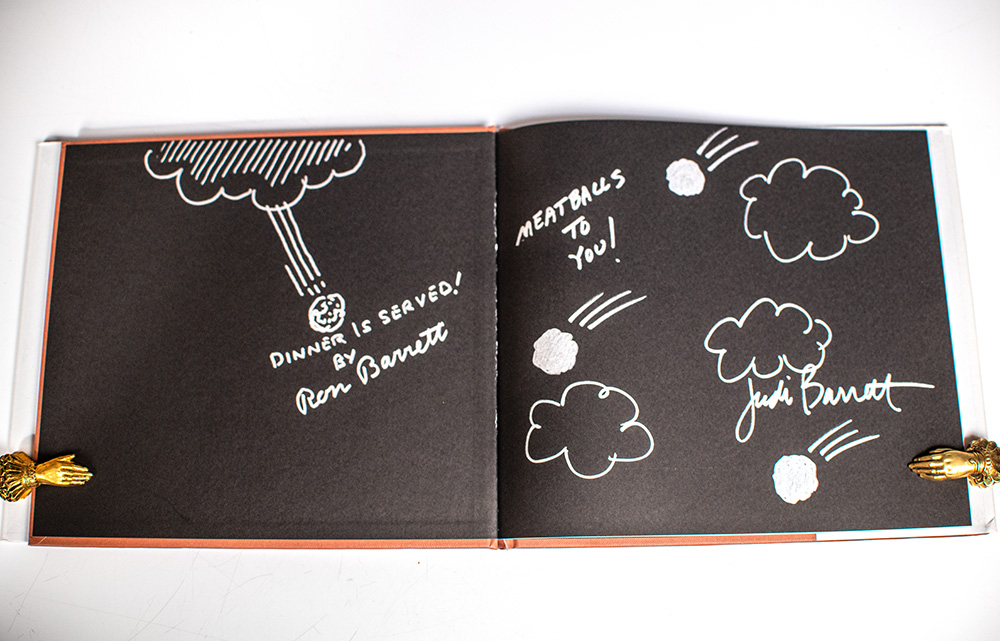 DINNER IS SERVED!
BY
Ron Barrett
MEATBALLS
TO
YOU!
Judi Barrett